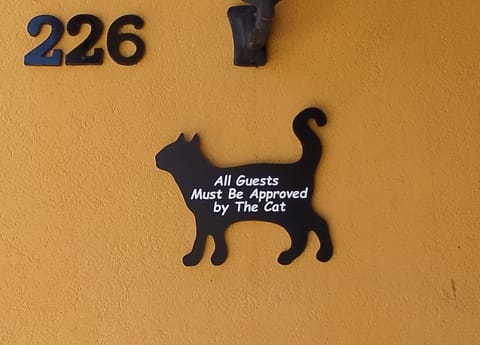 226
All Guests
Must Be Approved
by The Cat